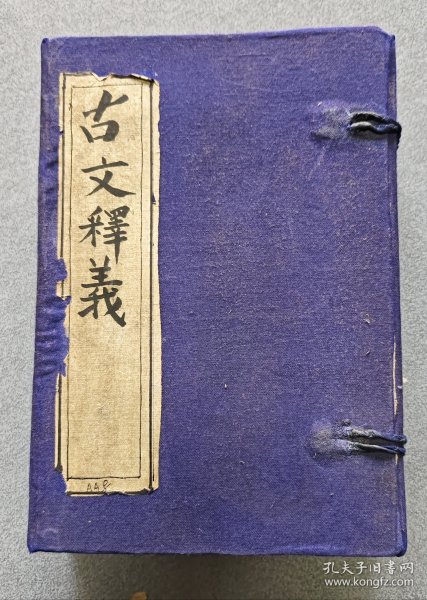 古文釋義
孔夫子旧书网
www.kongfz.com